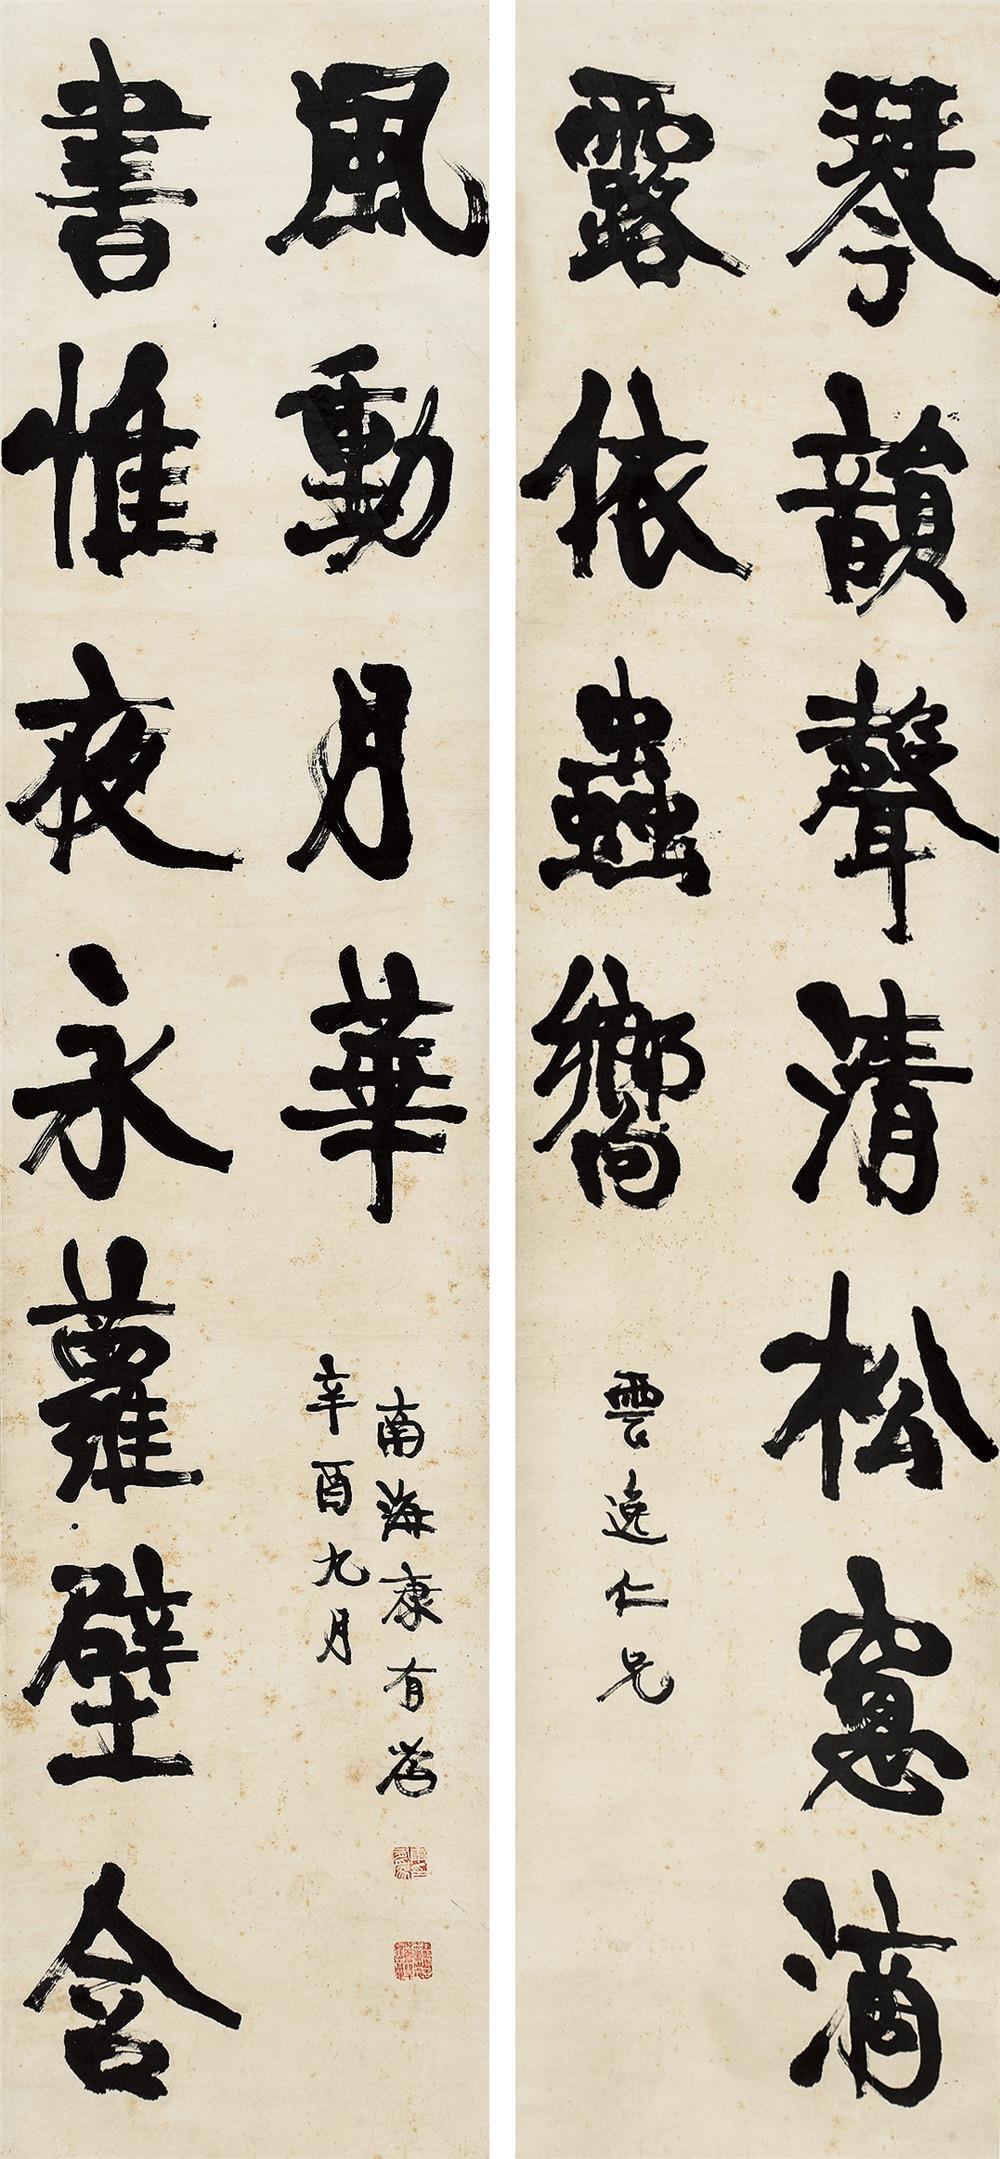 琴韻聲清松窻滴
露依蟲嚮
雲逸仁兄
書惟夜永蘿壁含
風動月華
辛酉九月
南海康有為